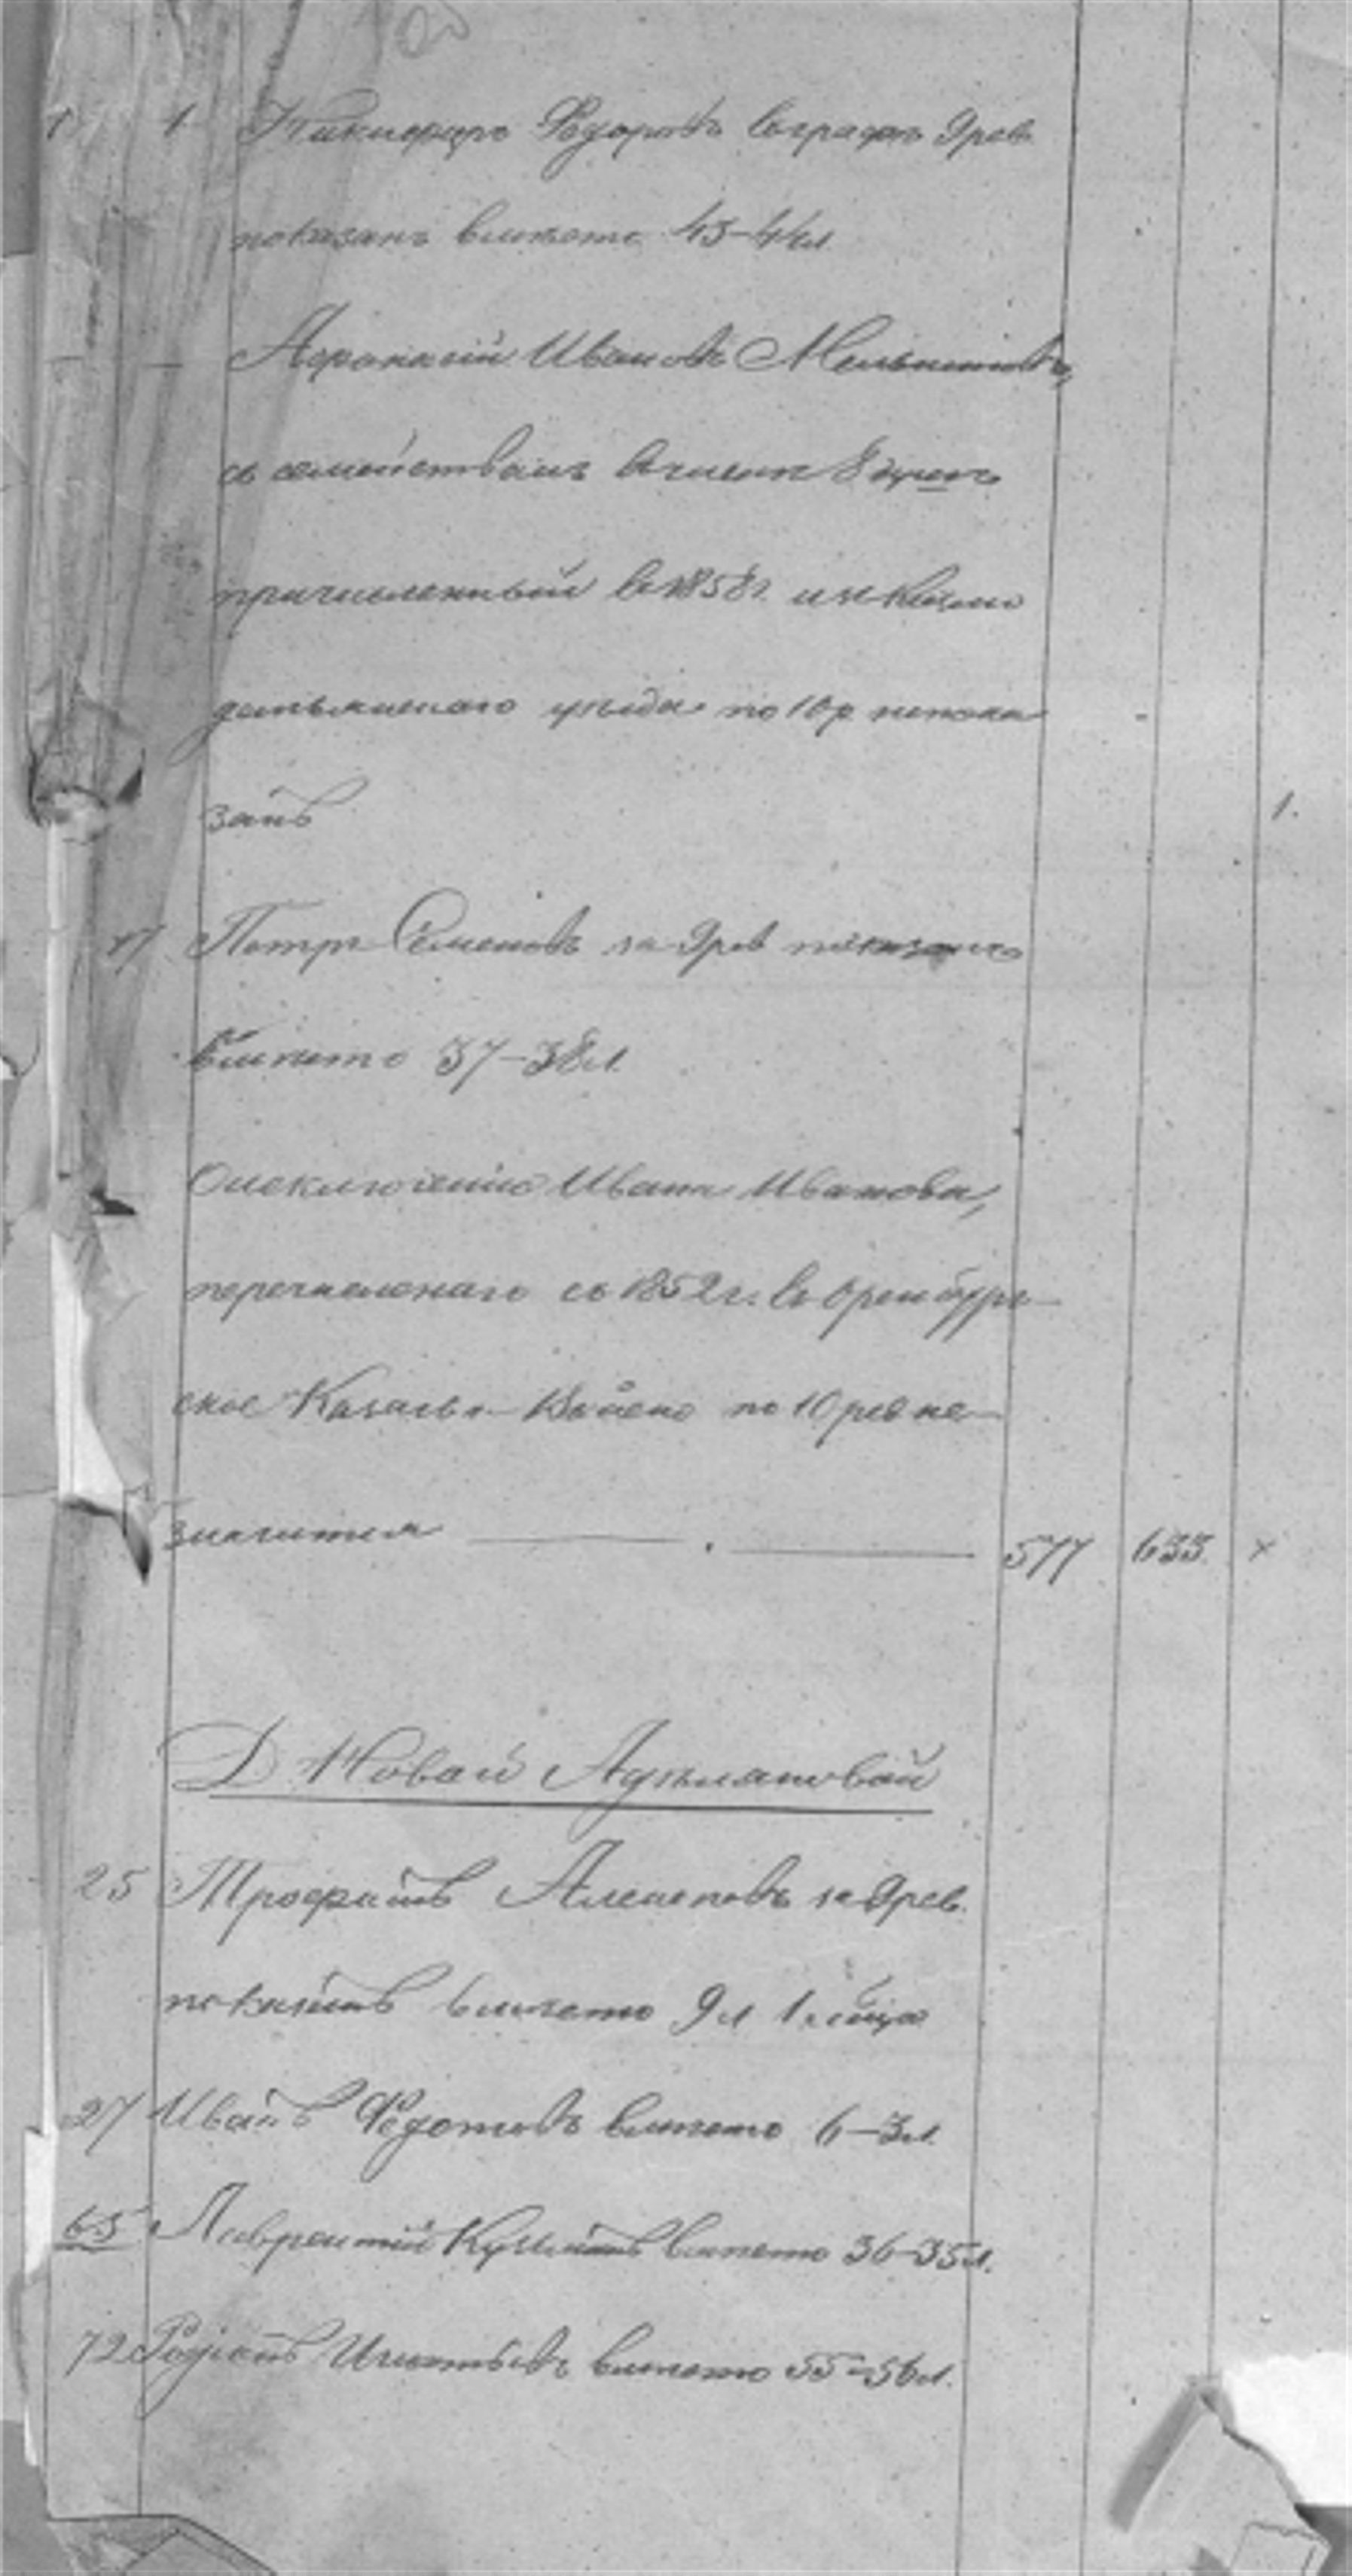 1 Никифоръ Федоровъ въ графѣ 9 рев.
показанъ вмѣсто 43-44 л.
Афонасій Ивановъ Мельниковъ,
съ семействомъ въ числѣ 8 душъ
причисленный въ 1858 г. изъ
уѣзда по 10 р. непока
занъ
17 Петръ Семеновъ за 9 рев показанъ
вмѣсто 37-38 л.
Исключеніе Ивана Иванова,
перечисленаго съ 1852 г. въ Оренбург-
ское Казачье Войско по 10 рев не-
значится 577 633. х
Д Новой
25 Трофимъ за 9 рев.
показанъ вмѣсто 9 л 1 мѣсяца
27 Иванъ Федотовъ вмѣсто 6-3 л.
65 Лаврентій Кузьминъ вмѣсто 36-35 л.
72 Родіонъ Игнатьевъ вмѣсто 55-56 л.
1.